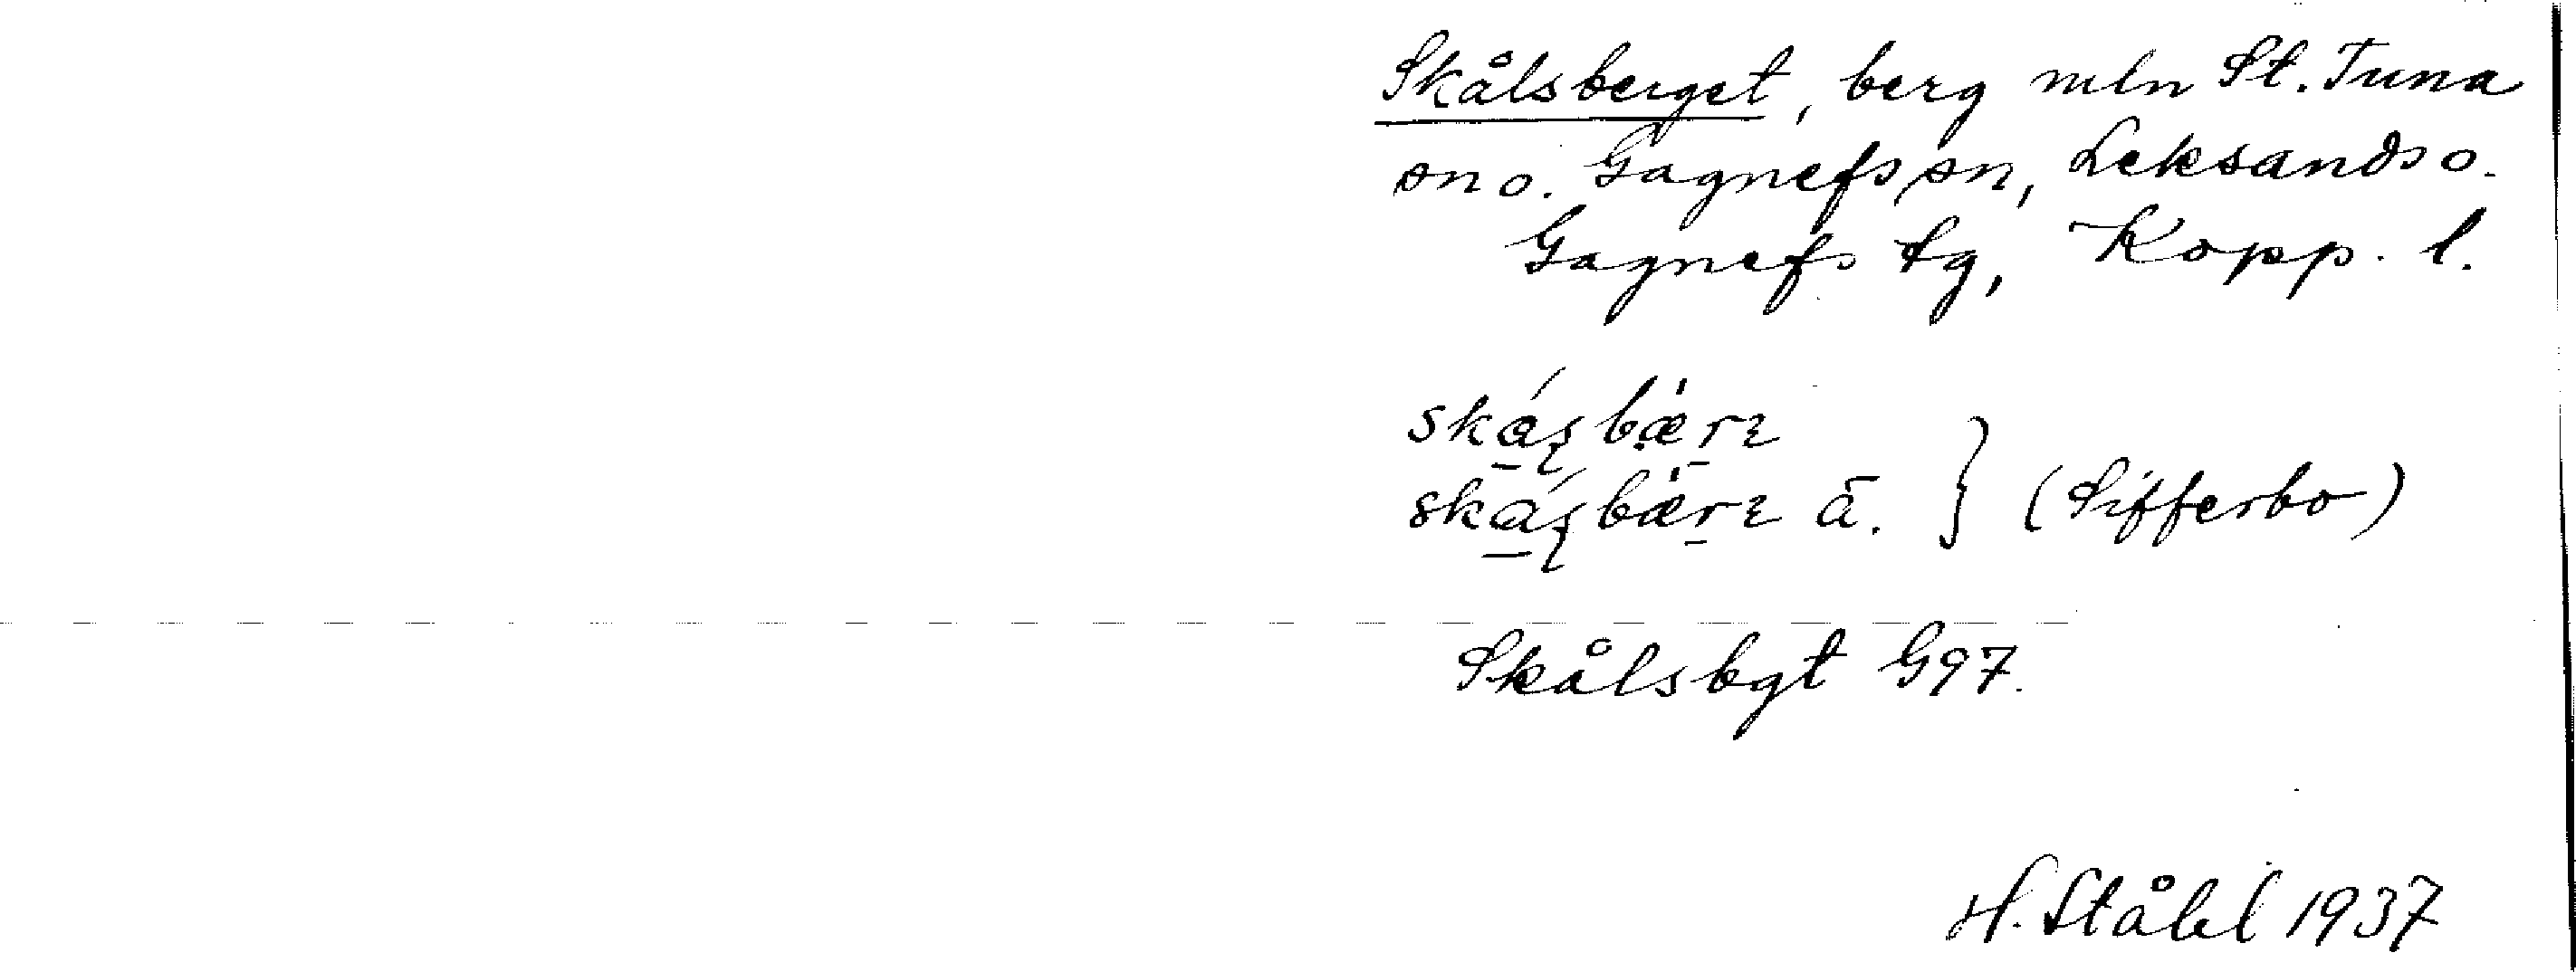 Skålsberget, berg mln St. Tuna
sn o. Gagnefs sn, Leksands o.
Gagnefs tg, Kopp. l.
ä. } (Sifferbo)
Skålsbgt G97.
H. Ståhl 1937